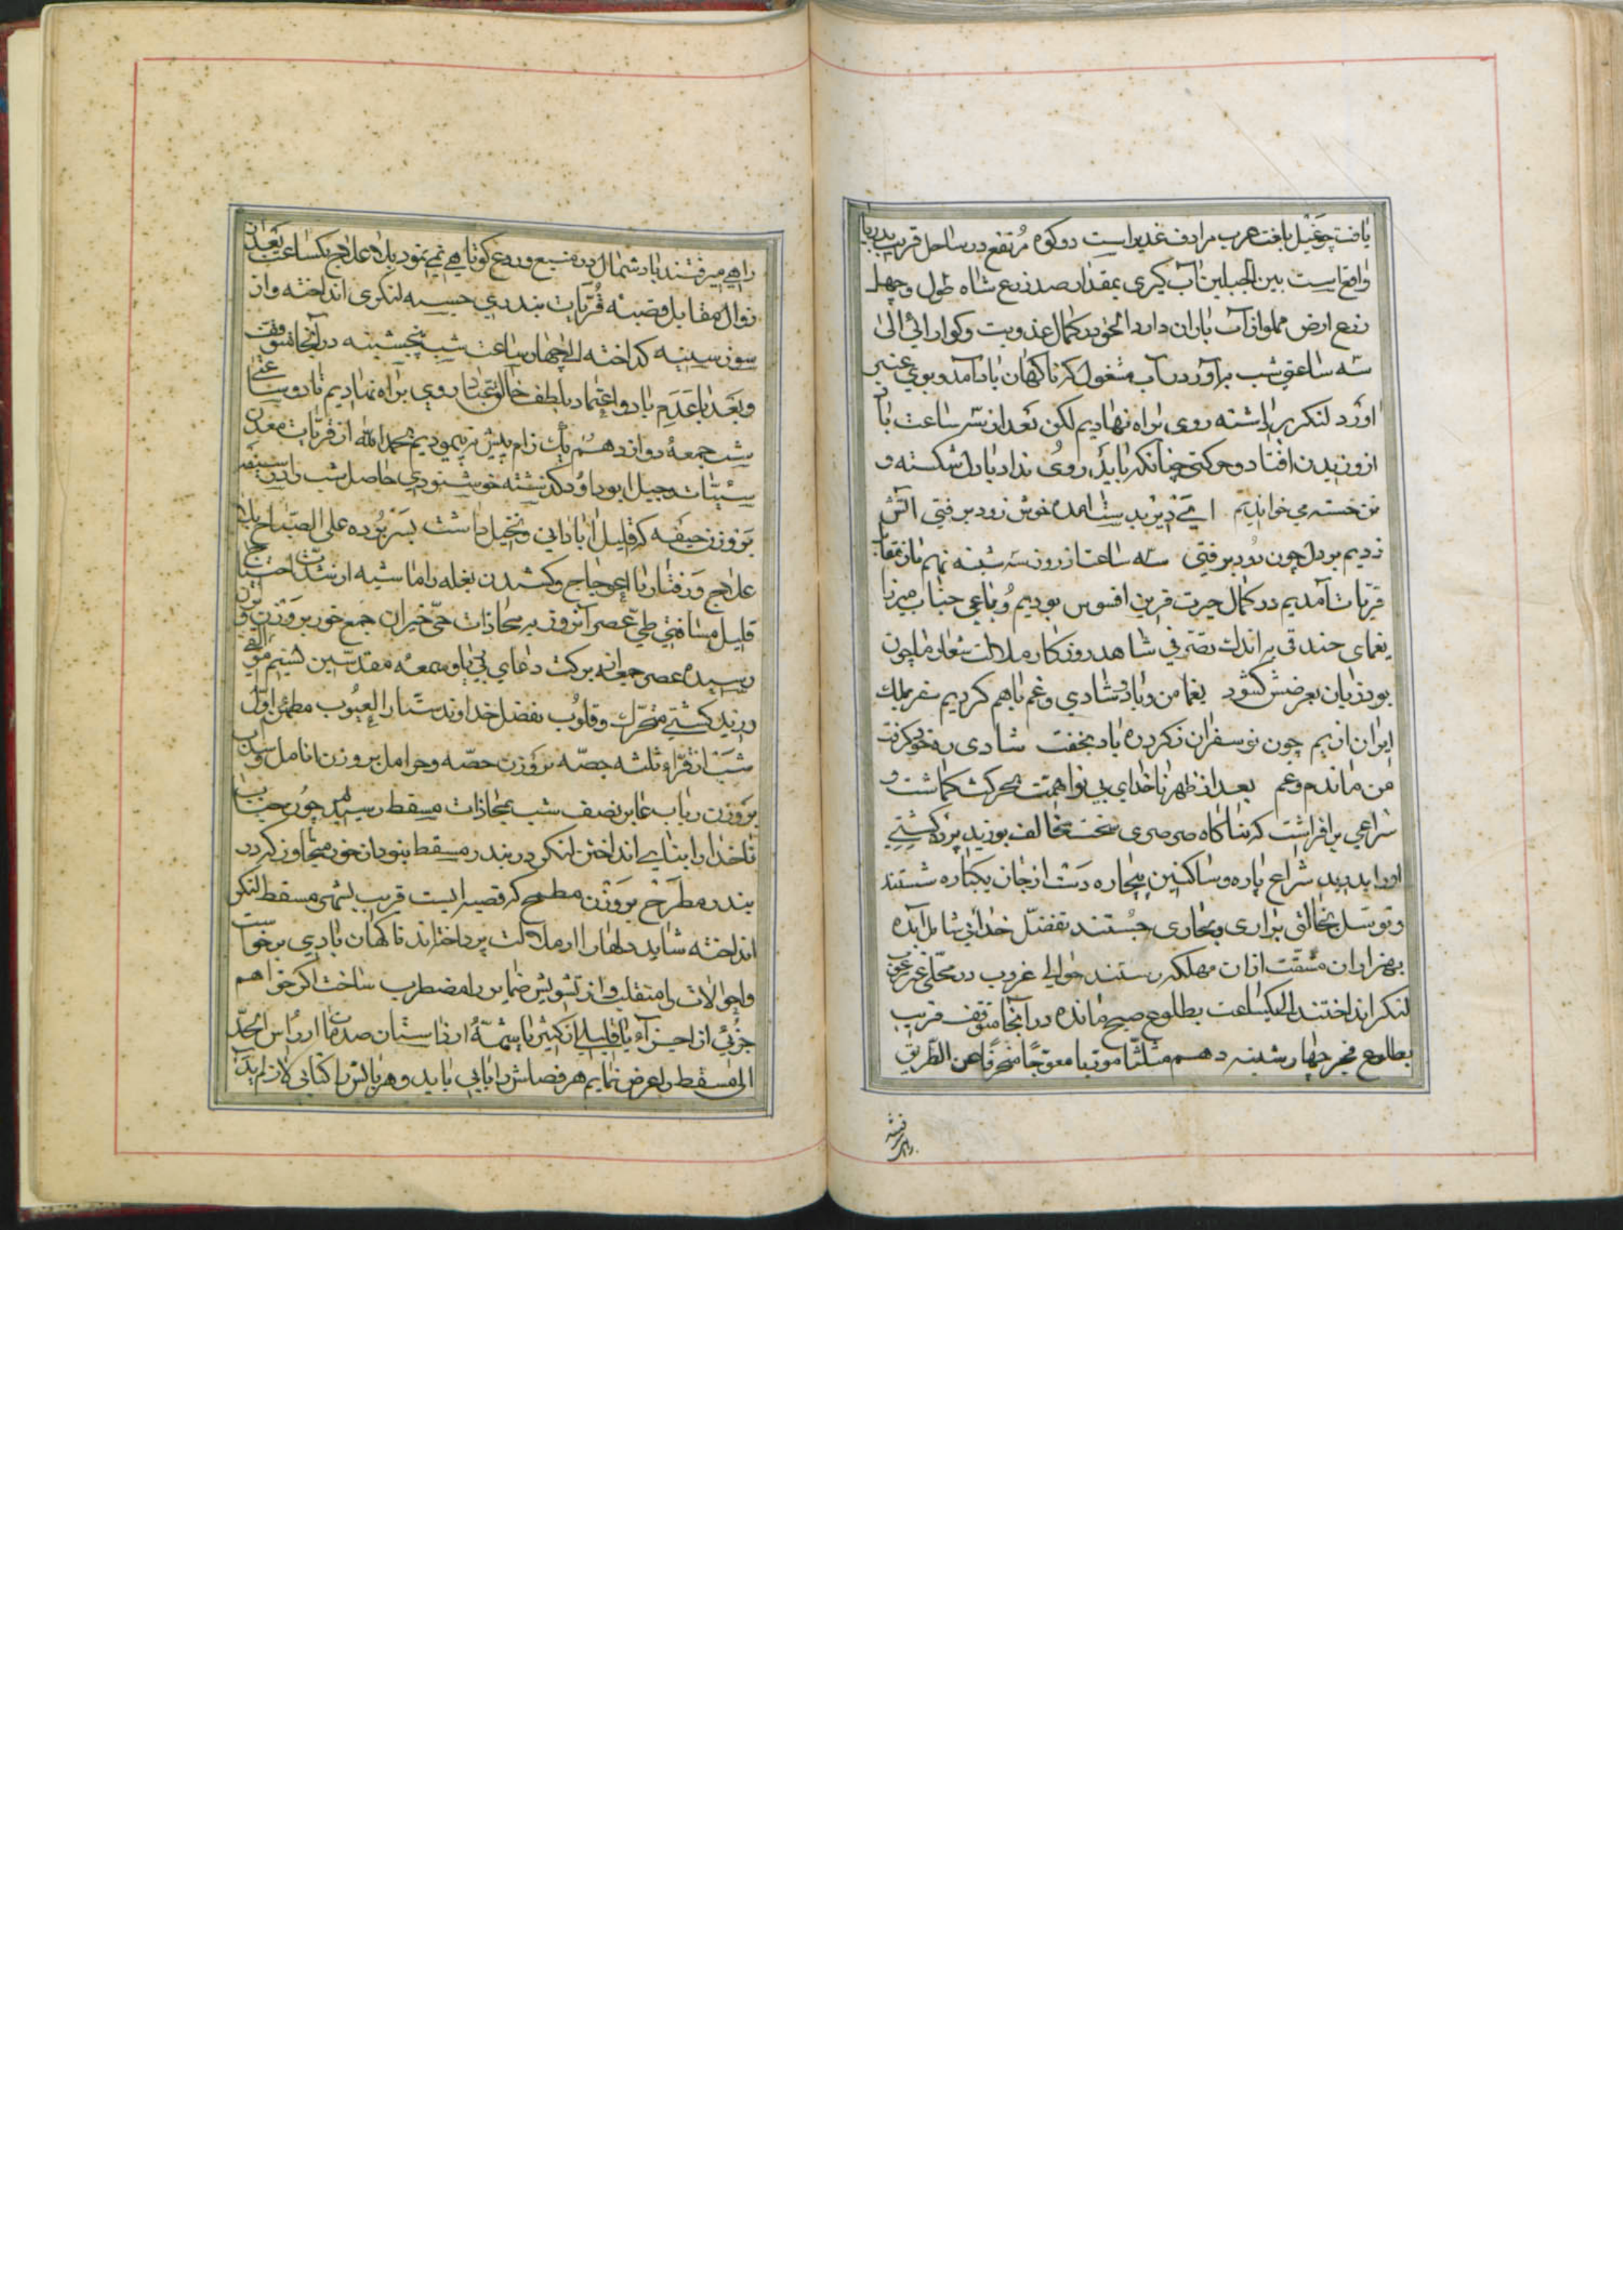 یافت چغیل بلغت عرب مرادف غدیر است دو کوه مرتفع در ساحل قریب بدریا
واقع است بین الجبلین آب گیری بمقدار صد ذرع شاه طول و چهل
ذرع ارض مملو از آب باران دارد الحق در کمال عذوبت و کوارائی الی
سه ساعتی شب برآوردن آب مشغول که ناکهان باد آمد و بوی عنبر
آورد لنکر برداشته روی براه نهادیم لکن بعد از سه ساعت باد
از وزیدن افتاد و حرکتی چنانکه باید روی نداد با دل شکسته و
تن خسته می خواندیم ای دیر بدست آمده خوش زود برفتی آتش
زدیم بر دل چون دود برفتی سه ساعت از روز سه شنبه
قریات آمدیم در کمال حیرت قرین افسوس بودیم رباعی جناب میرزا
یغمای جندقی براندک تصرفی شاهد روزکار ملالت شعار ما چون
بود زبان بعرضش کشود یغما من و باد و شادی و غم باهم کردیم سفر بملک
ایران ز چون نو سفران ز کرد ره باد بخفت شادی ره خود گرفت
من ماندم و غم بعد از ظهر ناخدای بی نوا همت بحرکت کماشت و
شراعی برافراشت که بناکاه صرصری سخت مخالف بوزید پرده کشتی
او را بدرید شراع پاره و ساکنین بیچاره دست از جان یکباره شستند
و توسل بخالق براری و بحاری جستند تفضل خدائی شامل آمده
بهزاران مشقت از ان مهلکه رستند حوالی غروب در محلی غیر معروف
لنکر انداختند الی یکساعت بطلوع صبح مانده در آنجا متوقف قریب
بطلوع فجر چهارشنبه دهم مثلثا موربا معوجا منحرفا عن الطریق
راهی میرفتند باد شمال در منع و ردع کوتاهی نمی نمود بلا علاج یکساعت بعد از
زوال مقابل قصبه قریات بندری حبسیه لنکری انداخته و از
سوز سینه کداخته الی چهار ساعت شب پنجشنبه در آنجا متوقف
و بعد با عدم باد و اعتماد بلطف خالق عباد روی براه نهادیم تا دو ساعتی
شب جمعه دوازدهم یک زام بیش نپیمودیم بحمد الله از قریات معدن
سیئات و جبل ابو داود کذشته خوشنودی حاصل شب را در
بر وزن حیفه که قلیل آبادانی و نخیل داشت بسر برده علی الصباح بلا
علاج و رفتار با اعوجاج و کشیدن بغله را ماشیه از شدت احتیاج
قلیل مسافتی طی عصر آنروز بر محاذات حی خیران جمع خور بر وزن
رسیده عصر جمعه برکت دعای بی ریا و سمعه مقدسین نسیم موافق
وزید کشتی متحرک و قلوب بفضل خداوند ستار العیوب مطمئن اول
شب از قراء ثلثه حصه بر وزن حصه و حرامل بر وزن انامل و سداب
بر وزن رباب عابر نصف شب بمحاذات مسقط رسیدیم چون جناب
ناخدا را بنای انداختن لنکر در بندر مسقط نبود از خور متجاوز کرد در
بندر مطرح بر وزن مطمح که قصبه ایست قریب بشهر مسقط لنکر
انداخته شاید دلها را از ملالت پرداخته اند ناکهان بادی برخواست
و احوالات را متقلب و از تشویش ضمایر را مضطرب ساخت اکر خواهم
جزئی از اجزاء یا قلیلی از کثیر یا شمه از داستان صدمات ما از راس الحد
الی مسقط را عرض نمایم هر فصلش را بابی باید و هر بابش را کتابی کان لم یکن